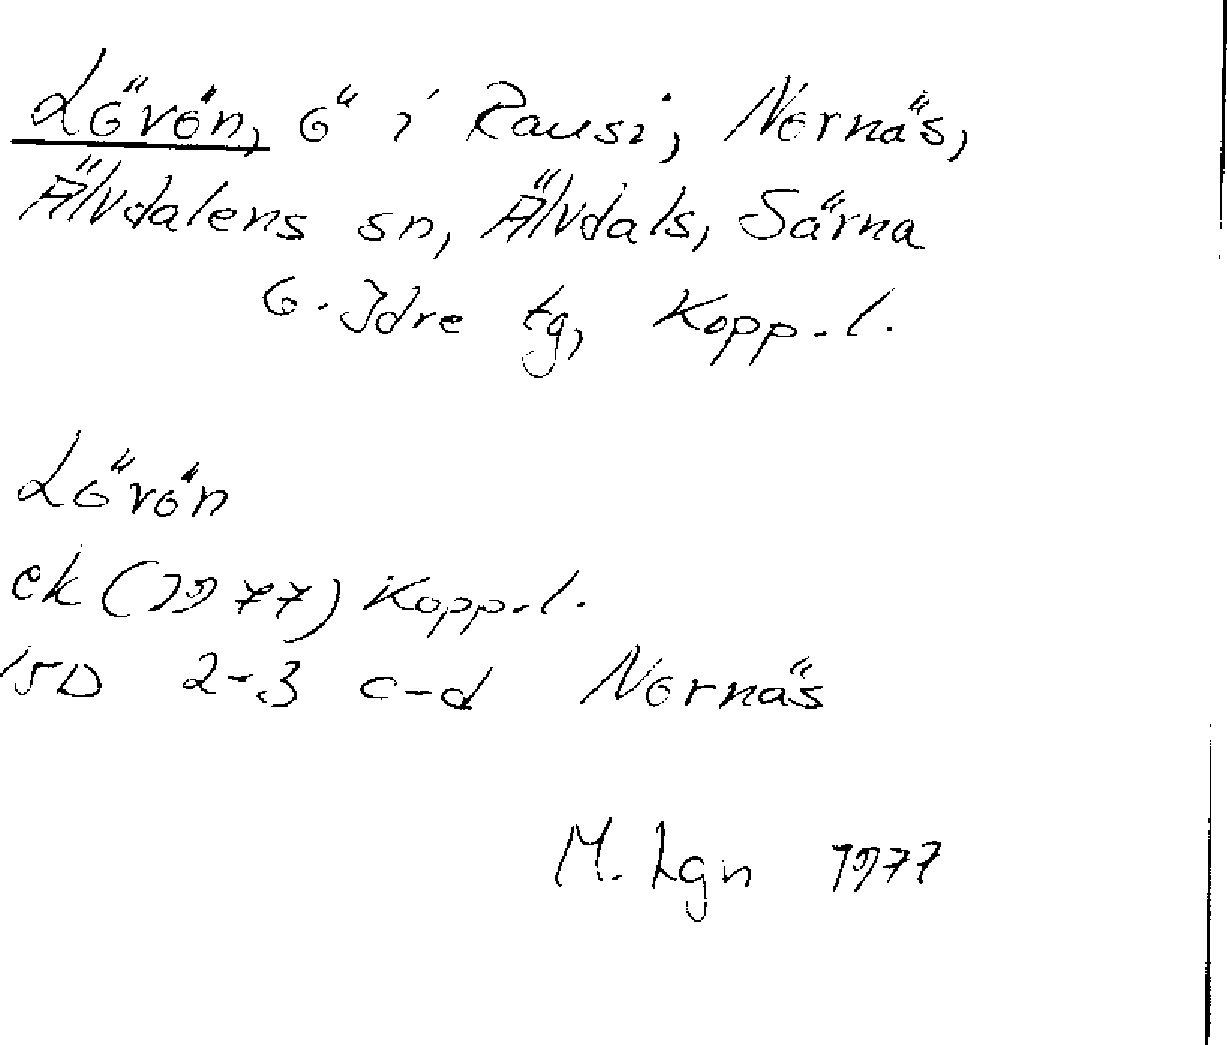 Lövön, ö i Rausi, Nornäs,
Älvdalens sn, Älvdals, Särna
o. Idre tg, Kopp. l.
Lövön
ek (1977) Kopp. l.
15D 2-3 c-d Nornäs
M. Lgn 1977